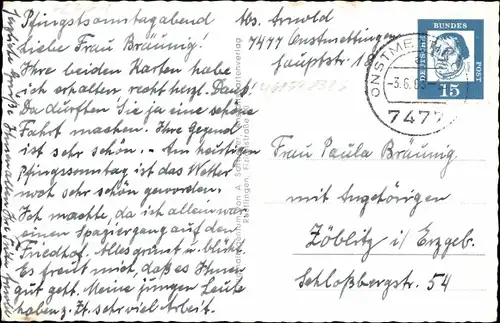 Pfingstsonntagabend
Liebe Frau Bräunig!
Ihre beiden Karten habe
ich erhalten recht herzl. Dank.
Da durften Sie ja eine schöne
Fahrt machen. Ihre Gegend
ist sehr schön. - Am heutigen
Pfingssonntag ist das Wetter
noch sehr schön geworden.
Ich machte, da ich allein war
einen Spaziergang auf den
Friedhof. Alles grünt u. blüht.
Es freut mich, daß es Ihnen
gut geht. Meine jungen Leute
haben z. Zt. sehr viel Arbeit.
Abs. Arnold
7477 Onstmettingen
Hauptstr. 18
DEUTSCHE
BUNDES
POST
15
ONSTME
-3.6.63
7477
Frau Paula Bräunig
mit Angehörigen
Zöblitz i/Erzgeb.
Schloßbergstr. 54